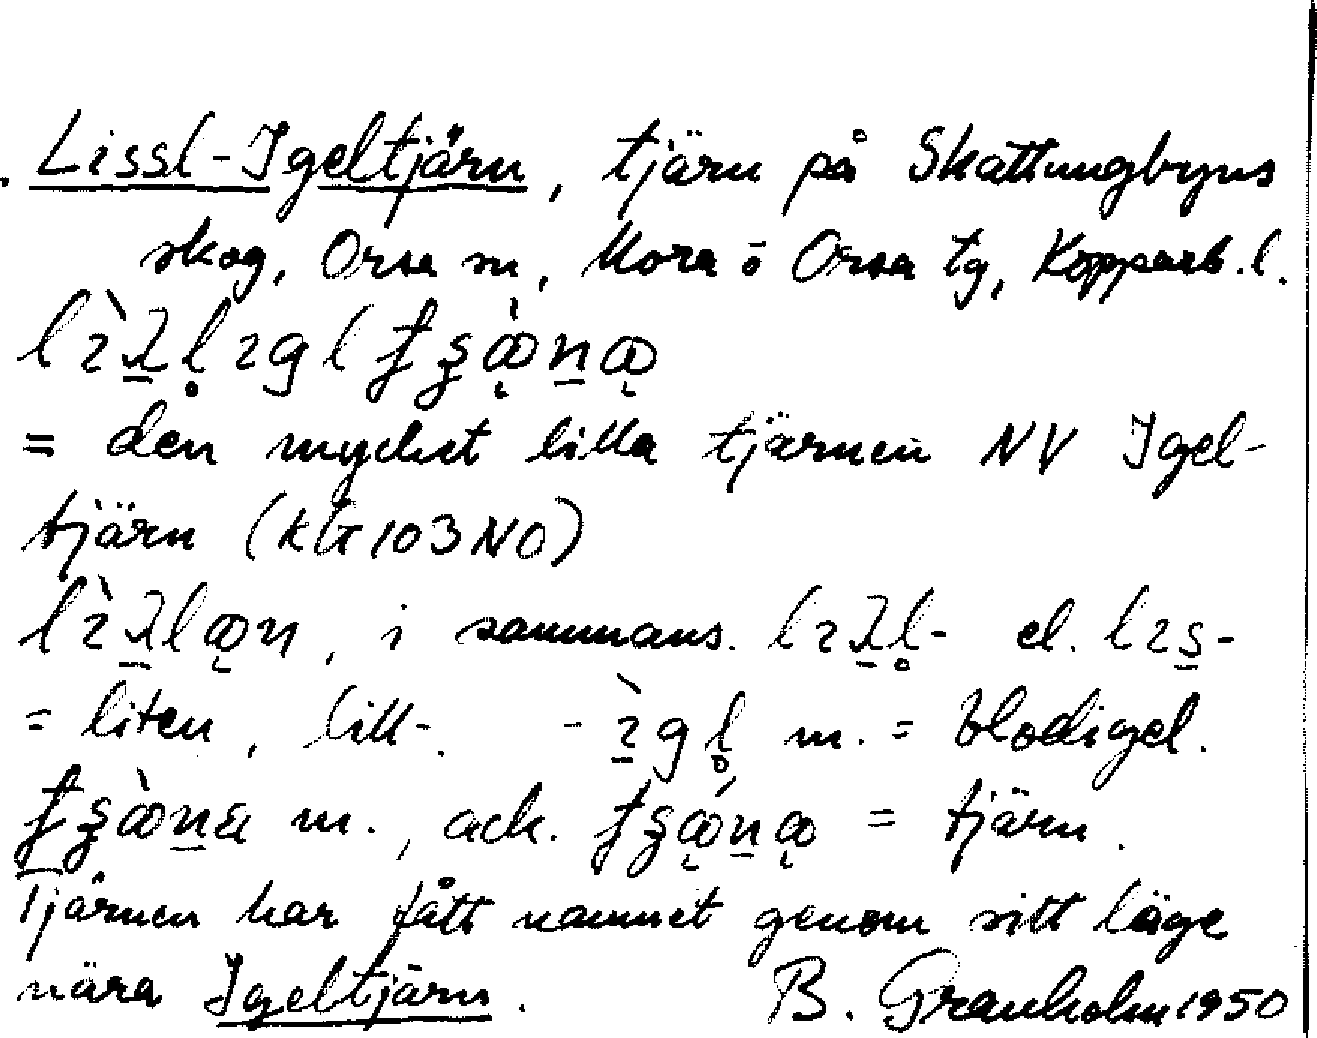 Lissl-Igeltjärn, tjärn på Skattungbyns
skog, Orsa sn, Mora o Orsa tg, Kopparb. l.
= den mycket lilla tjärnen NV Igel-
tjärn (kbl 103 NO)
i sammans. el.
= liten, lill-. m. = blodigel.
m., ack. = tjärn.
Tjärnen har fått namnet genom sitt läge
nära Igeltjärn. B. Granholm 1950